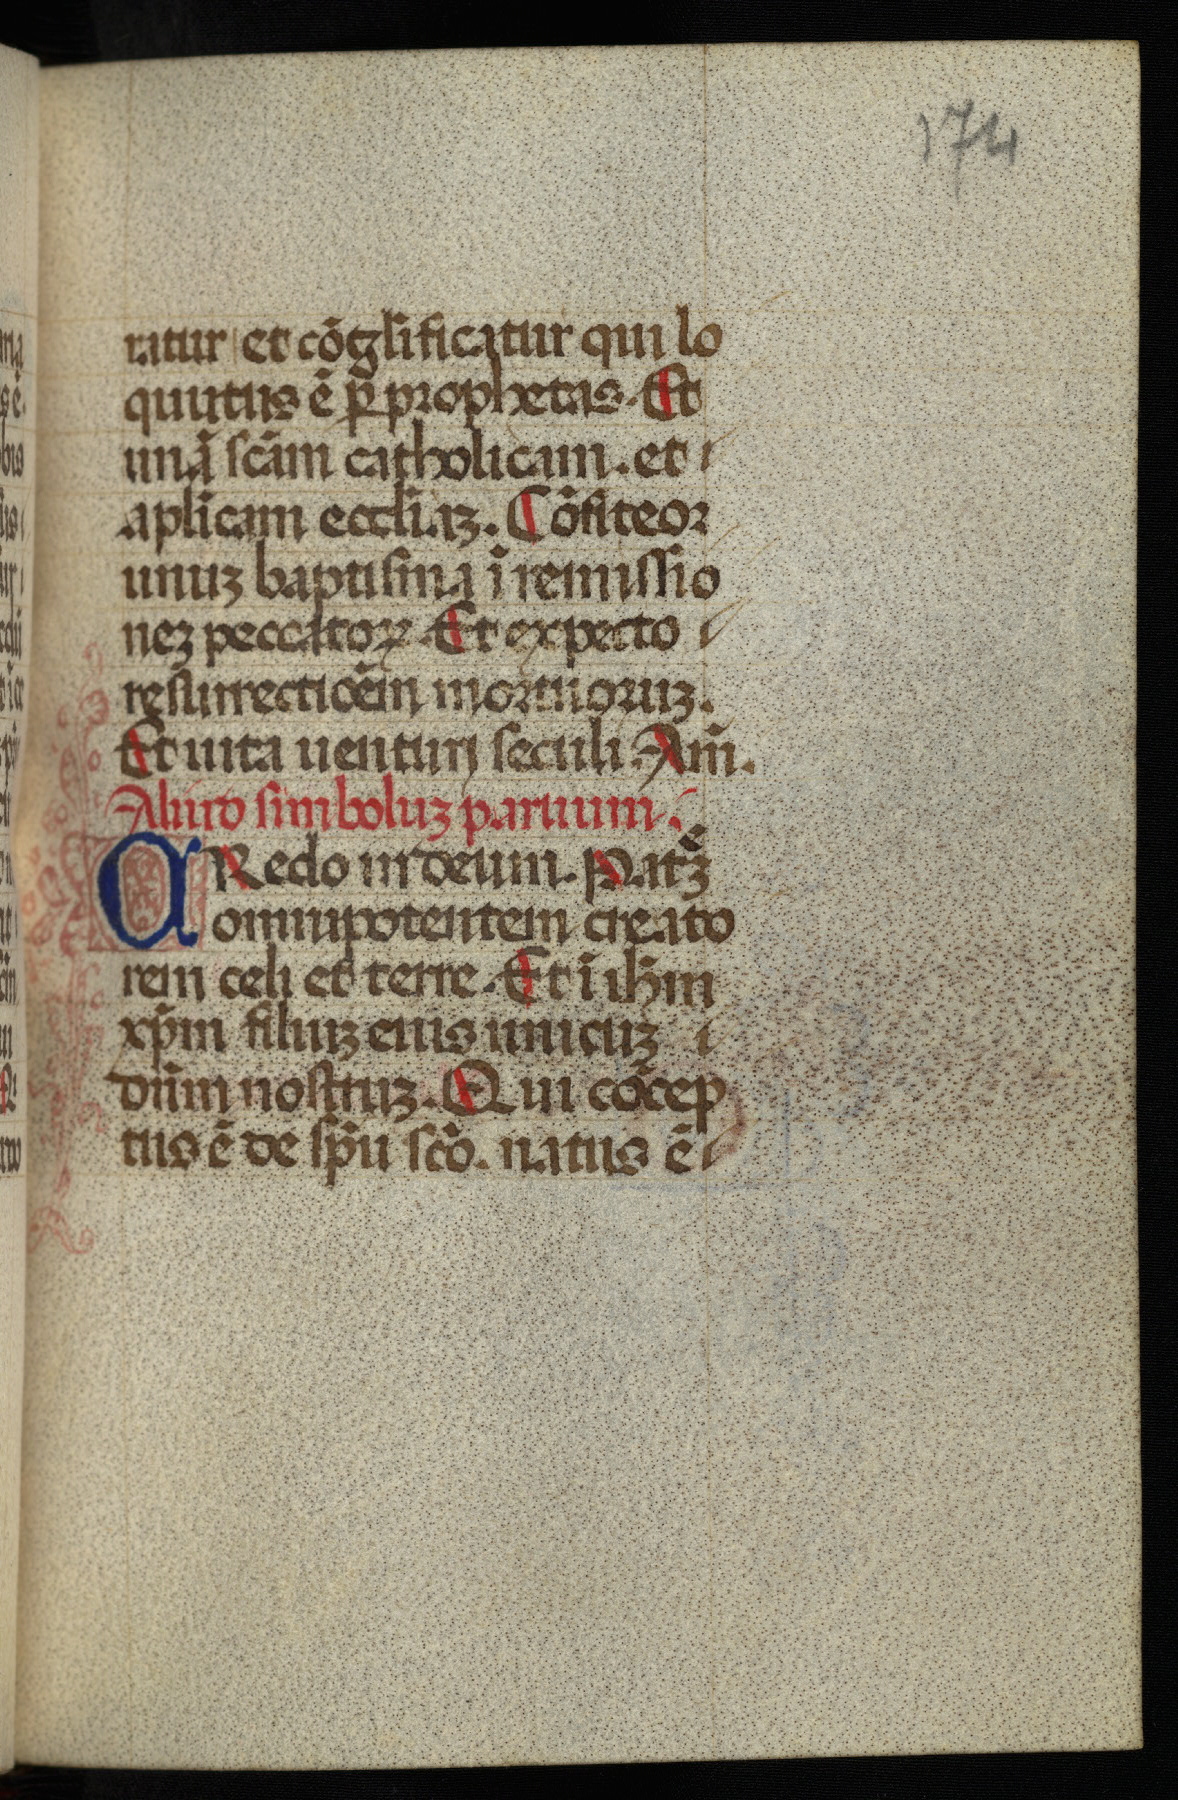 174
ratur et cōglificatur qui lo
quutus ē p̄ prophetas. Et
unā scām catholicam. et
aplicam eccliaz. Cōfiteor
unuz baptisma ī remissio
nez peccatoꝝ Et expecto
resurrectiōēm mortuoruz.
Et uita uenturi seculi. Am̄.
Aliud simboluz paruum.
CRedo in deum. Patrēz
omnipotentem creato
rem celi et terre. Et ī ih̄m
xp̄m filiuz eius unicuz
dn̄m nostruz. Qui cōcep
tus ē de sp̄u scō. natus ē